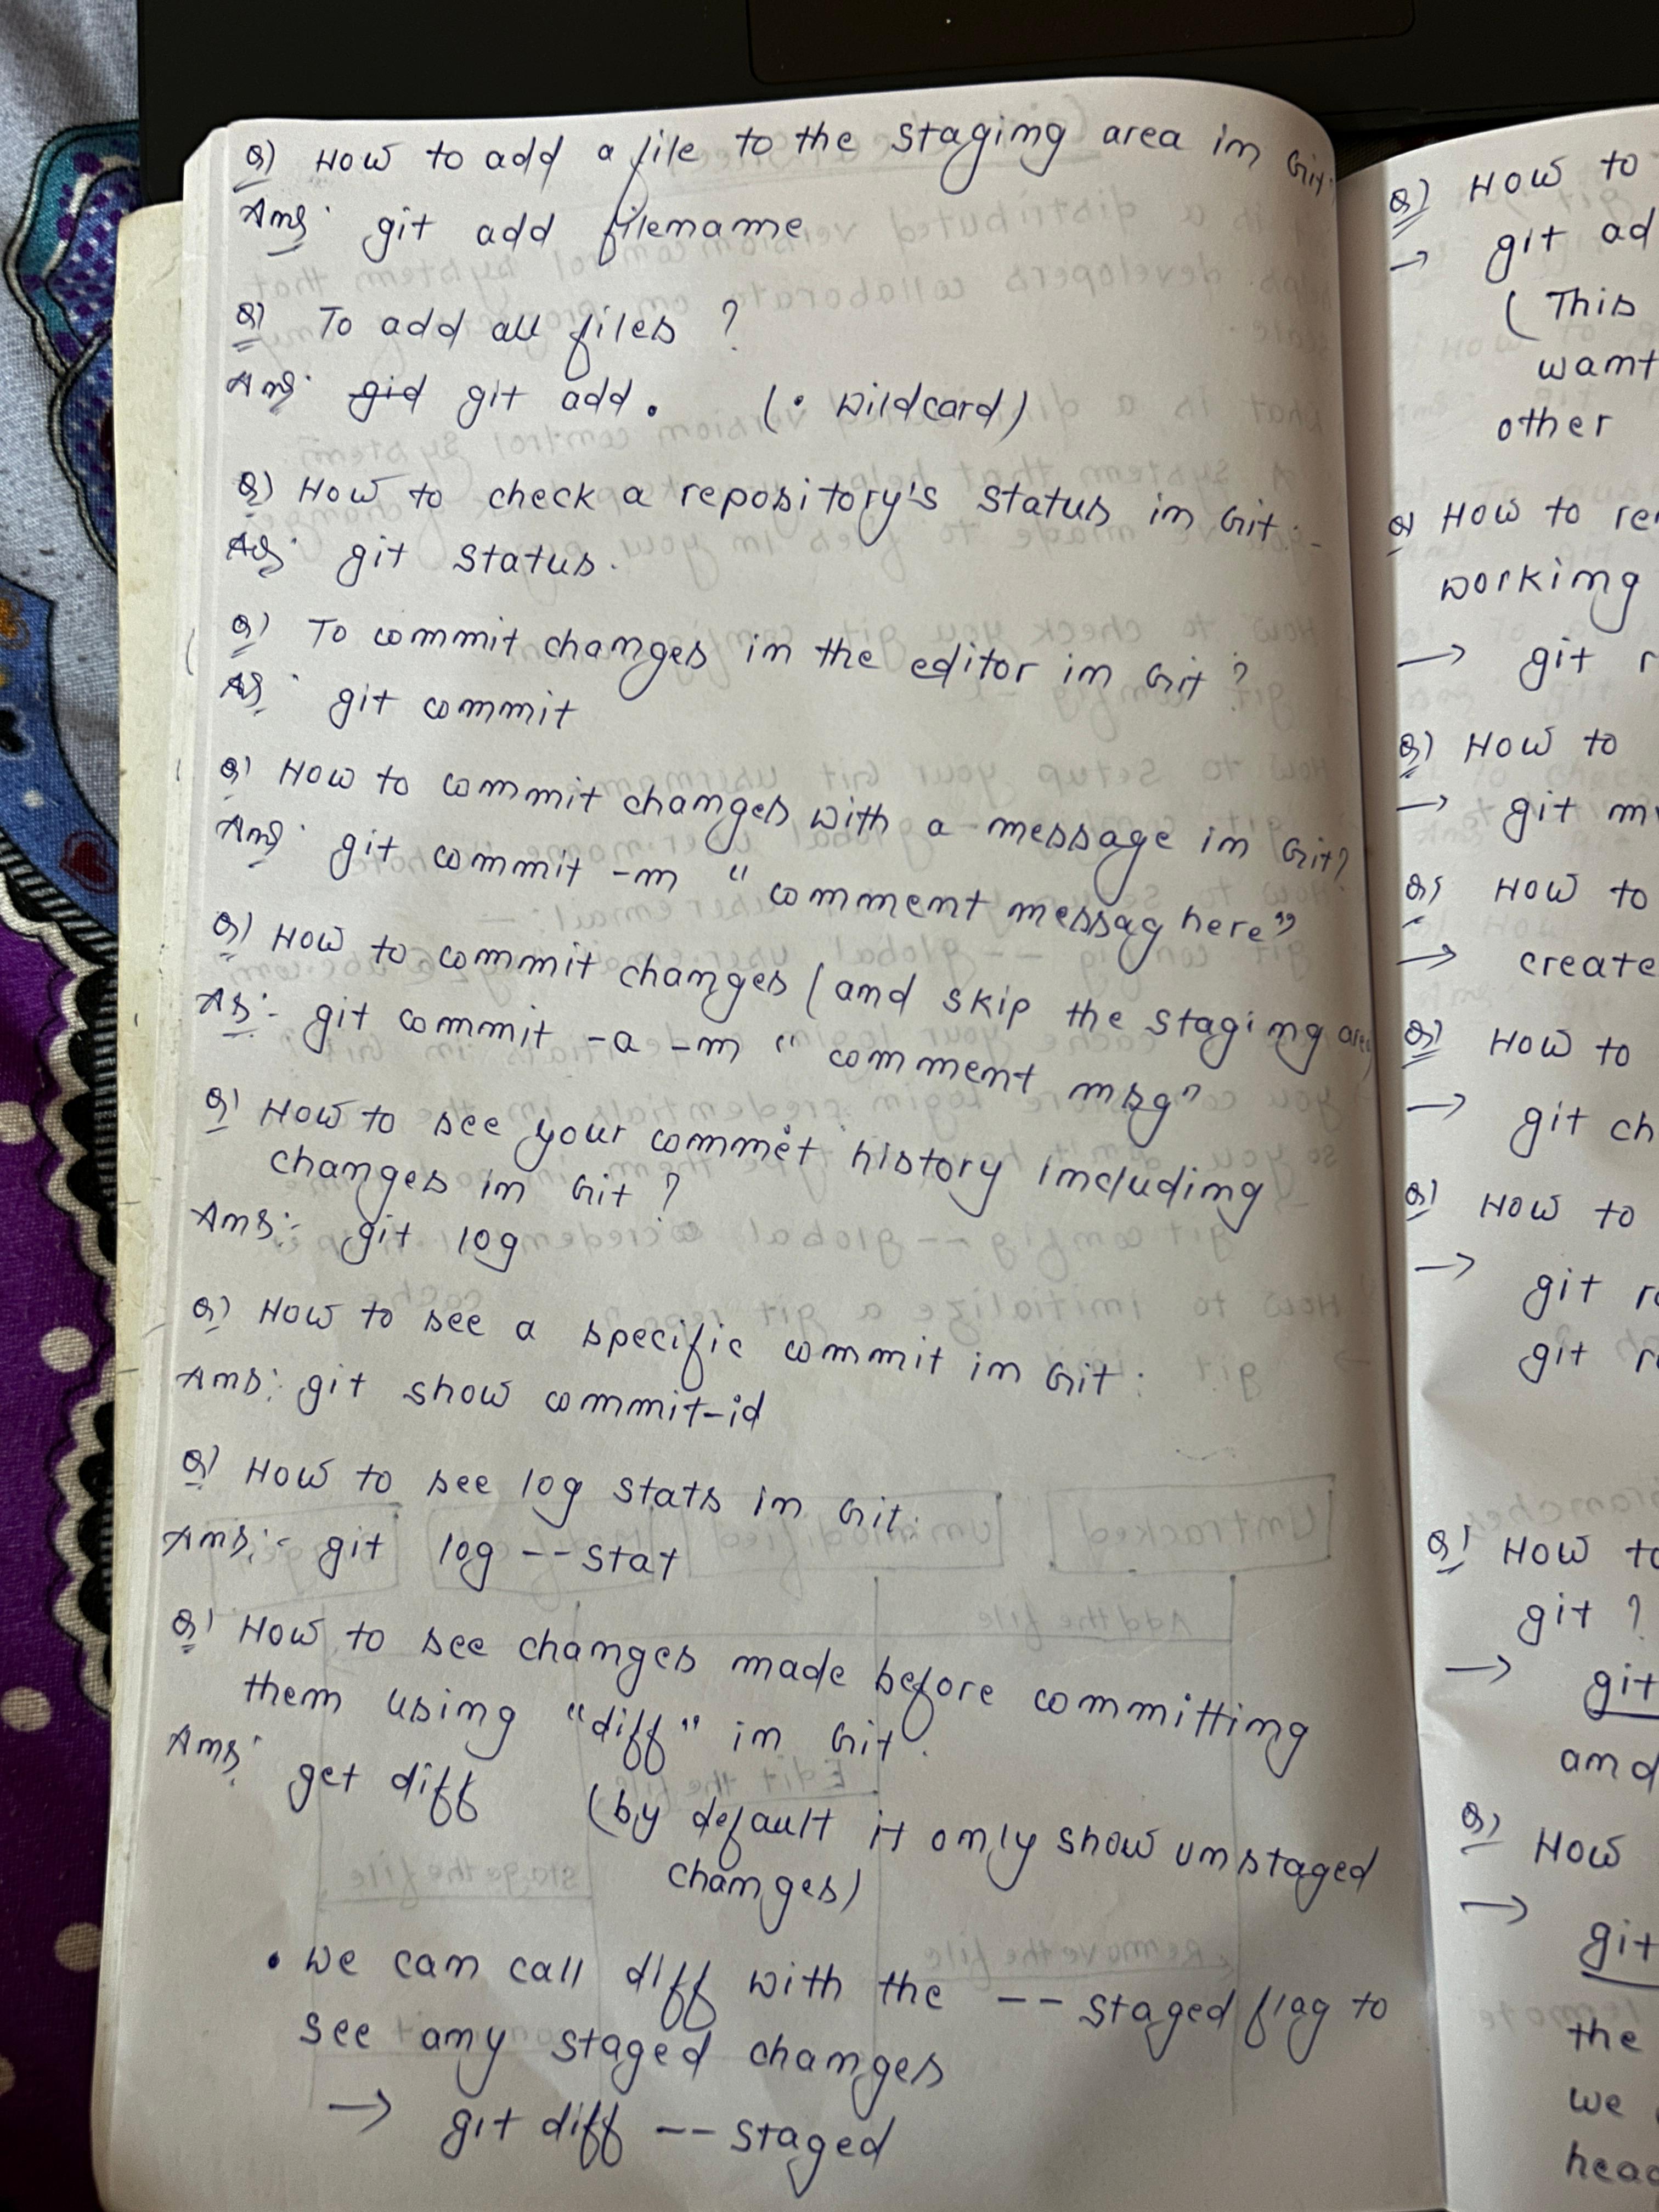 Q) How to add a file to the staging area in Git:
Ans: git add filename
Q) To add all files ?
Ans: gid git add . (. wildcard)
Q) How to check a repository's status in Git:-
As: git status.
Q) To commit changes in the editor in Git ?
As: git commit
Q) How to commit changes with a message in Git?
Ans: git commit -m "comment messag here"
Q) How to commit changes (and skip the staging area)
As:- git commit -a -m "comment msg"
Q) How to see your commit history including
changes in Git ?
Ans:- git log
Q) How to see a specific commit in Git:
Ans: git show commit-id
Q) How to see log stats in Git:
Ans:- git log --stat
Q) How to see changes made before committing
them using "diff" in Git.
Ans: get diff (by default it only show unstaged
changes)
• we can call diff with the --staged flag to
see any staged changes
→ git diff --staged
Q) How to
→ git ad
(This
want
other
Q) How to re
working
→ git r
Q) How to
→ git mv
Q) How to
→ create
Q) How to
→ git ch
Q) How to
→ git r
git r
Q) How to
git ?
→ git
and
Q) How
→ git
the
we
head